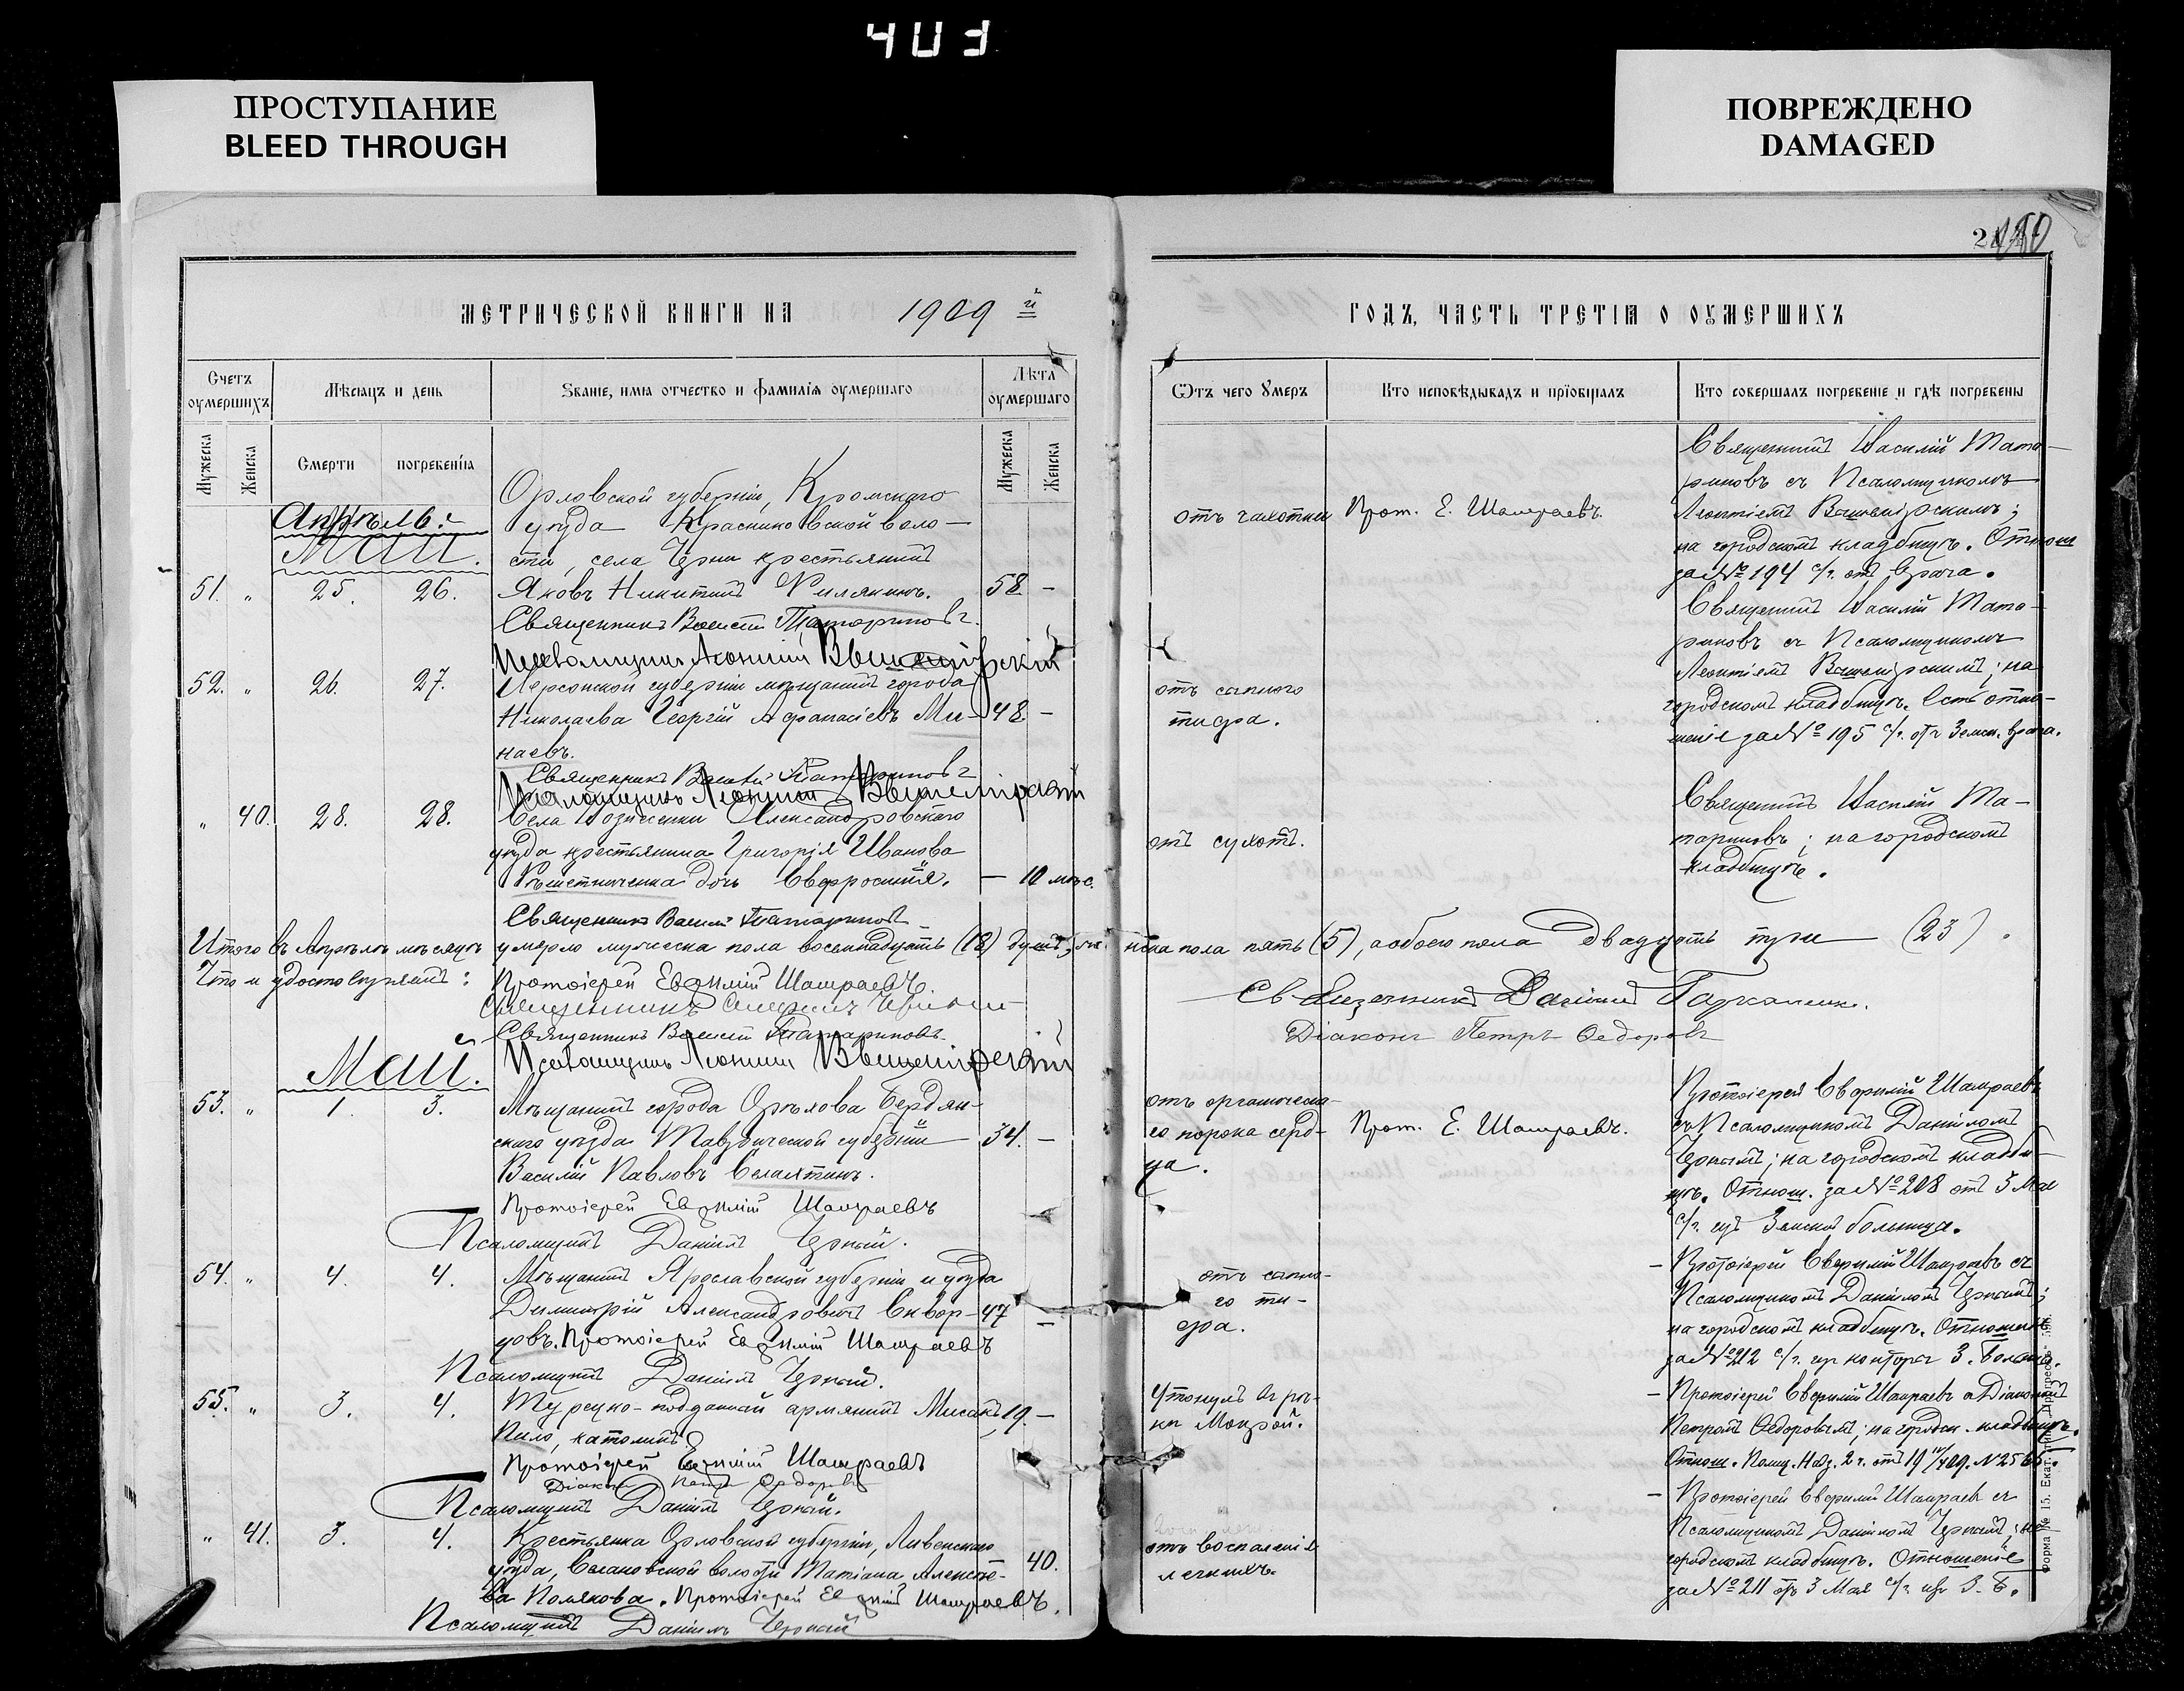 ПРОСТУПАНИЕ
BLEED THROUGH
ПОВРЕЖДЕНО
DAMAGED
МЕТРИЧЕСКОЙ КНИГИ НА 1909 й
ГОДЪ, ЧАСТЬ ТРЕТІЯ О ОУМЕРШИХЪ
Счетъ оумершихъ
Мѣсяцъ и день
Званіе, имя отчество и фамилія оумершаго
Лѣта оумершаго
Отъ чего умеръ
Кто исповѣдывалъ и пріобщалъ
Кто совершалъ погребеніе и гдѣ погребены
Мужеска
Женска
Смерти
погребенія
Мужеска
Женска
Апрѣль.
Май.
Орловской губерніи, Кромского
уѣзда Красниковской воло-
сти, села Черни крестьянинъ
51. " 25. 26. Яковъ Никитинъ Филякинъ. 58 -
Священникъ Василій Татариновъ.
отъ чахотки
Прот. Е. Шамраевъ.
Священникъ Василій Тата-
риновъ съ Псаломщикомъ
Леонтіемъ
на городскомъ кладбищѣ. Отнош
за № 194 с/г. отъ врача.
Псаломщикъ Леонтій
52. " 26. 27. Херсонской губерніи мѣщанинъ города
Николаева Георгій Афанасіевъ Ми- 48 -
наевъ.
Священникъ Василій Татариновъ
Псаломщикъ Леонтій
отъ сыпного
тифа.
Священникъ Василій Тата-
риновъ съ Псаломщикомъ
Леонтіемъ ; на
городскомъ кладбищѣ. Есть отно-
шеніе за № 195 с/г. отъ Земск. врача.
" 40. 28. 28. Села Вознесенки Александровскаго
уѣзда крестьянина Григорія Иванова
дочь Евфросинія. - 10 мѣс.
Священникъ Василій Татариновъ
отъ сухотъ.
Священникъ Василій Та-
тариновъ; на городскомъ
кладбищѣ.
Итого въ Апрѣлѣ мѣсяцѣ умерло мужеска пола восемнадцать (18) душъ, же- нска пола пять (5), а обоего пола двадцать три (23).
Что и удостовѣряемъ: Протоіерей Евфимій Шамраевъ.
Священникъ
Священникъ Василій
Священникъ Василій Татариновъ.
Діаконъ Петръ Федоровъ
Псаломщикъ Леонтій
Май.
53. " 1. 3. Мѣщанинъ города Орѣхова Бердян-
скаго уѣзда Таврической губерніи 34. -
Василій Павловъ Селаятинъ.
Протоіерей Евфимій Шамраевъ
Псаломщикъ Даніилъ Черный.
отъ органическа-
го порока серд-
ца.
Прот. Е. Шамраевъ.
Протоіерей Евфимій Шамраевъ
съ Псаломщикомъ Даніиломъ
Чернымъ; на городскомъ кладби-
щѣ. Отнош. за № 208 отъ 3 Мая
с/г. изъ Земской больницы.
54. " 4. 4. Мѣщанинъ Ярославской губерніи и уѣзда
Димитрій Александровичъ Сквор- 47 -
цовъ. Протоіерей Евфимій Шамраевъ
Псаломщикъ Даніилъ Черный.
отъ сыпно-
го ти-
фа.
- Протоіерей Евфимій Шамраевъ съ
Псаломщикомъ Даніиломъ Чернымъ;
на городскомъ кладбищѣ. Отношеніе
за № 212 с/г. изъ конторы З. больниц.
55. " 3. 4. Турецко-подданный армянинъ Мисакъ 19. -
Пило, католикъ
Протоіерей Евфимій Шамраевъ
Діаконъ Петръ Федоровъ
Псаломщикъ Даніилъ Черный.
Утонулъ въ рѣ-
кѣ Мокрой.
- Протоіерей Евфимій Шамраевъ съ Діакономъ
Петромъ Федоровымъ; на городск. кладбищѣ.
Отнош. Помщ. Надз. 2 ч.
" 41. 3. 4. Крестьянка Орловской губерніи, Ливенскаго
уѣзда, волости Татіана Алексѣе- 40.
ва Полякова. Протоіерей Евфимій Шамраевъ.
Псаломщикъ Даніилъ Черный
отъ воспаленія
легкихъ.
- Протоіерей Евфимій Шамраевъ съ
Псаломщикомъ Даніиломъ Чернымъ; на
городскомъ кладбищѣ. Отношеніе
за № 211 отъ 3 Мая с/г. изъ З. Б.
Форма № 15. Екат. тип.